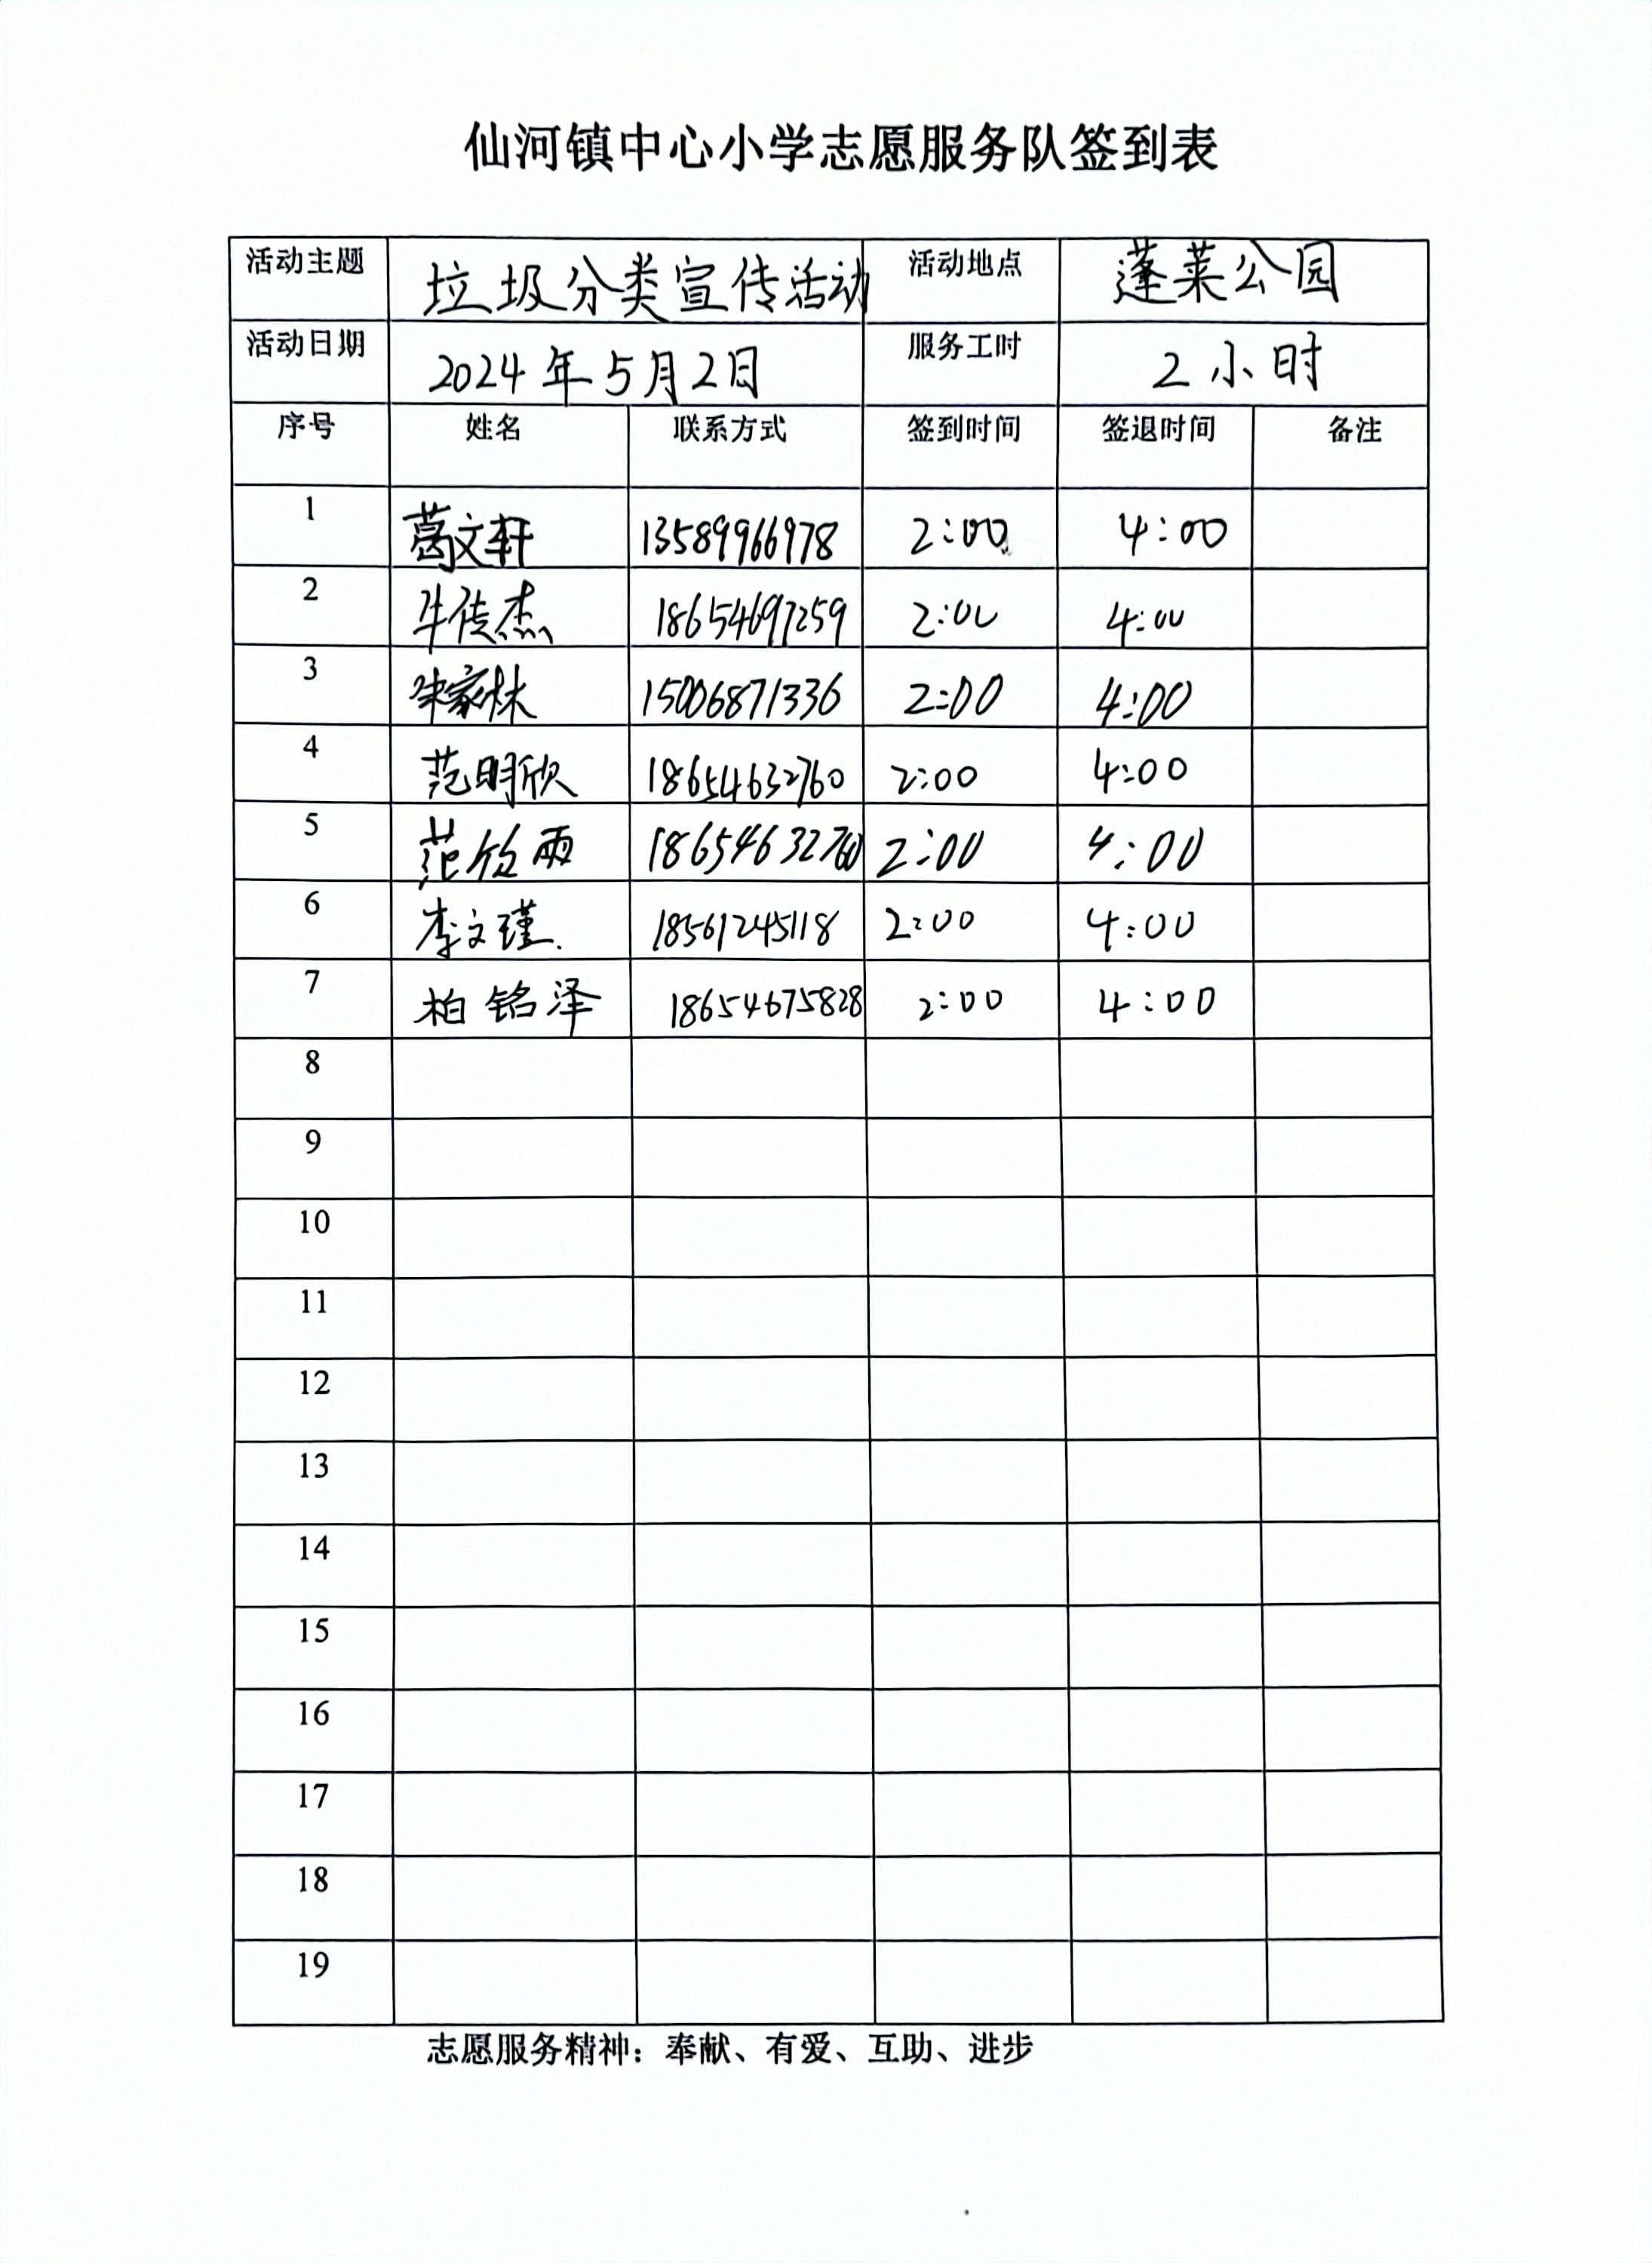 仙河镇中心小学志愿服务队签到表
活动主题 垃圾分类宣传活动 活动地点 蓬莱公园
活动日期 2024年5月2日 服务工时 2小时
序号 姓名 联系方式 签到时间 签退时间 备注
1 葛文轩 13589966978 2:00 4:00
2 牛传杰 18654697259 2:00 4:00
3 朱家林 15006871336 2:00 4:00
4 范明欣 18654632760 2:00 4:00
5 18654632760 2:00 4:00
6 李文瑾 18561245118 2:00 4:00
7 柏铭泽 18654675828 2:00 4:00
8
9
10
11
12
13
14
15
16
17
18
19
志愿服务精神：奉献、有爱、互助、进步